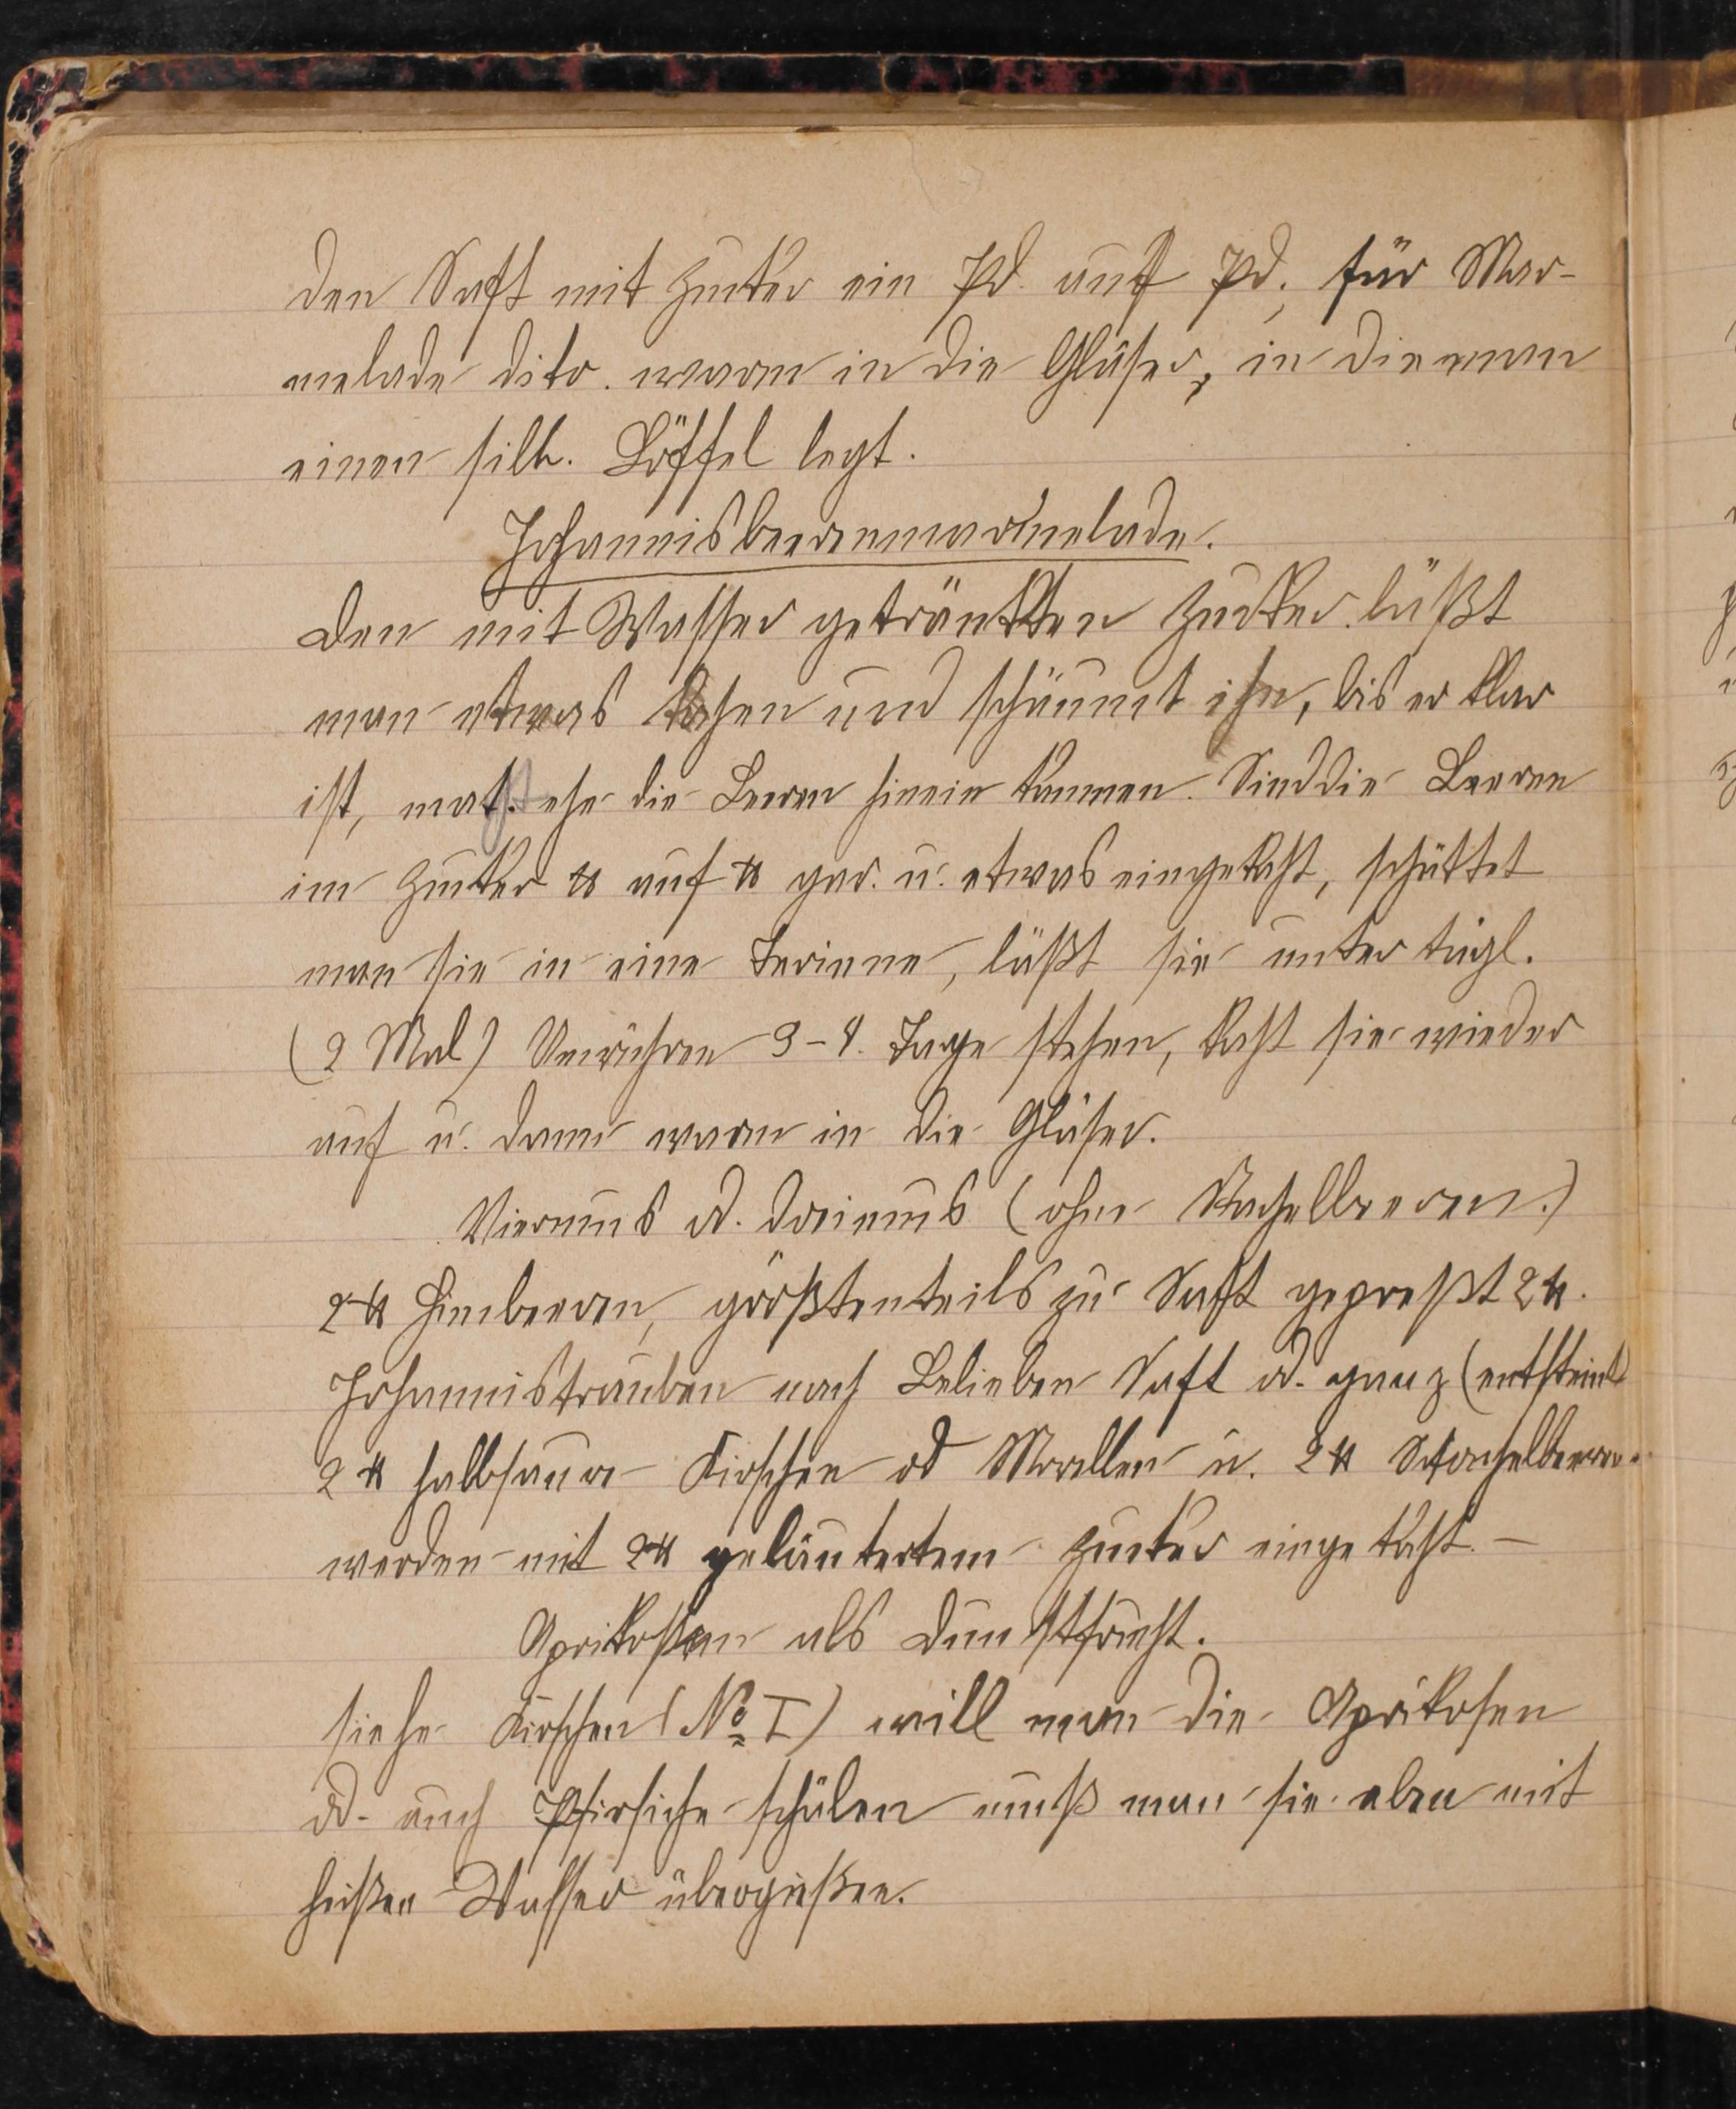 den Saft mit Zucker ein Pd. auf Pd. für Mar-
melade dito. warm in die Gläser, in die man
einen silb. Löffel legt.
Johannisbeerenmarmelade.
Den mit Wasser getränkten Zucker läßt
man etwas kochen und schäumt ihn, bis er klar
ist, ehe die Beeren hinein kommen. Sind die Beeren
im Zucker ℔ auf ℔ gar. u. etwas eingekocht, schüttet
man sie in eine Terinne, läßt sie unter tägl.
(2 Mal) Umrühren 3-4. Tage stehen, kocht sie wieder
auf u. dann warm in die Gläser.
Viermus od. Dreimus (ohne Stachelbeeren.)
2 ℔ Himbeeren, größtenteils zu Saft gepreßt 2 ℔.
Johannistrauben nach Belieben Saft od. ganz (entsteint
2 ℔ halbsaure Kirschen od Morellen u. 2 ℔ Stachelbeeren.
werden mit 2 ℔ geläutertem Zucker eingekocht. —
Aprikosen als Dunstfrucht.
siehe Kirschen (No I) will man die Aprikosen
od. auch Pfirsiche schälen muß man sie eben mit
heißen Wasser übergießen.